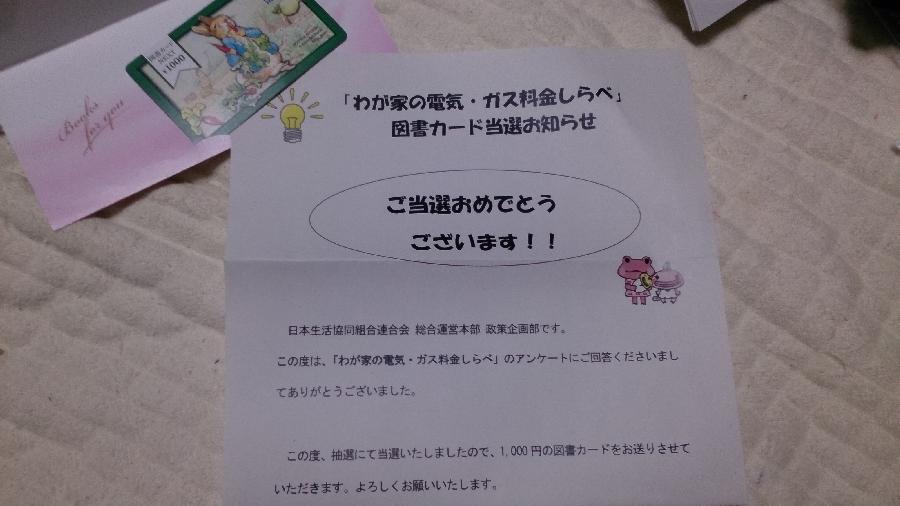 図書カード
NEXT
¥1000
Books
for you
「わが家の電気・ガス料金しらべ」
図書カード当選お知らせ
ご当選おめでとう
ございます！！
日本生活協同組合連合会 総合運営本部 政策企画部です。
この度は、「わが家の電気・ガス料金しらべ」のアンケートにご回答くださいまし
てありがとうございました。
この度、抽選にて当選いたしましたので、1,000円の図書カードをお送りさせて
いただきます。よろしくお願いいたします。